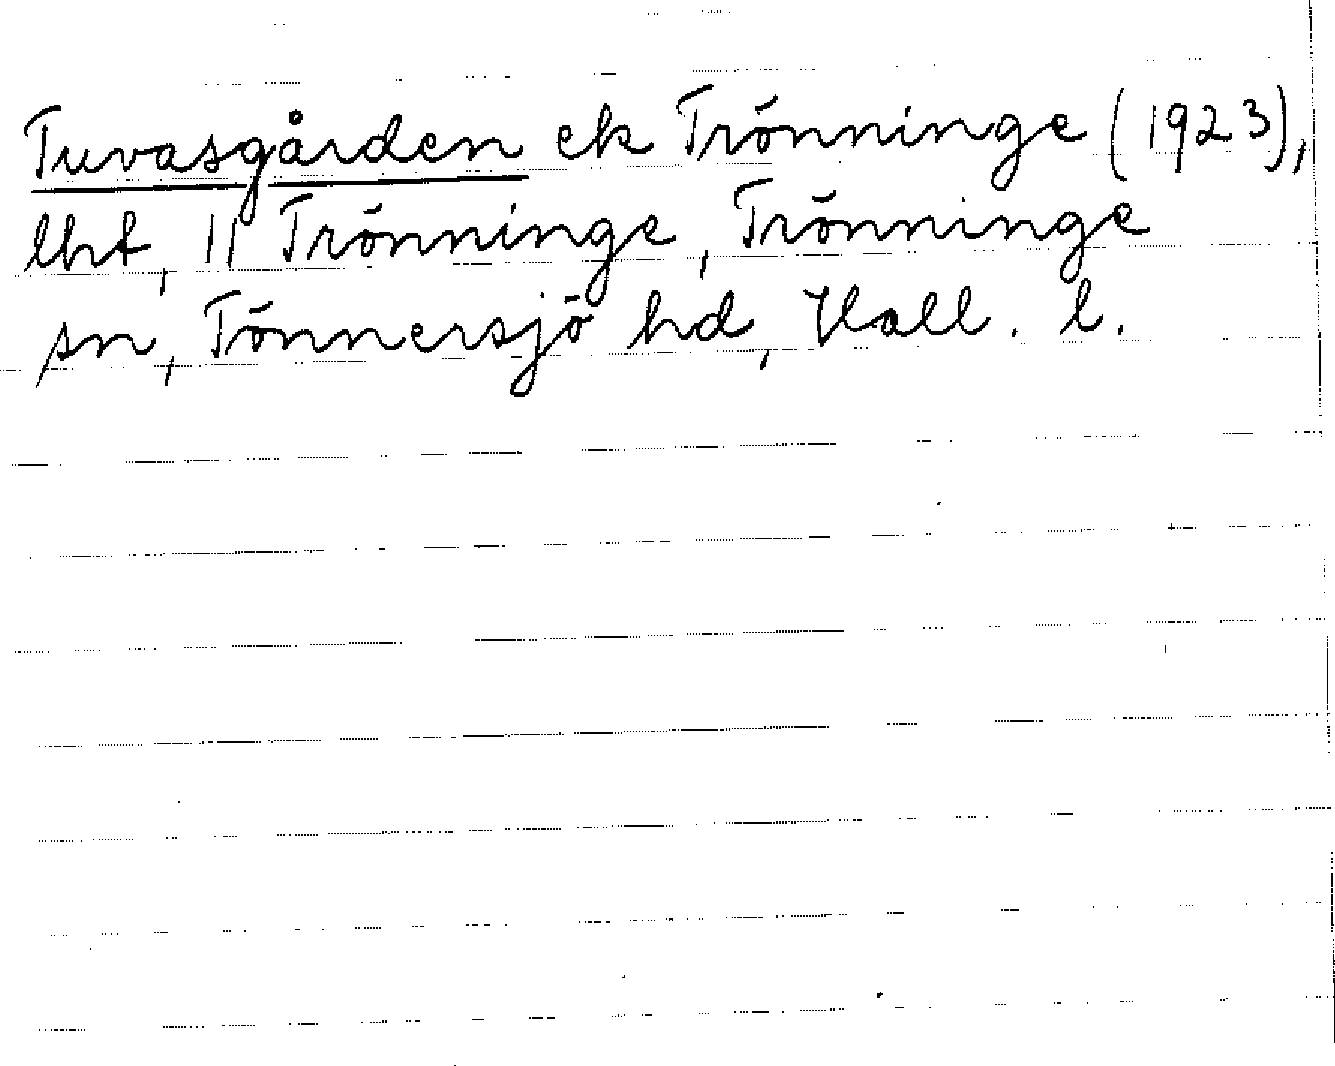 Tuvasgården ek Trönninge (1923),
lht, 11 Trönninge, Trönninge
sn, Tönnersjö hd, Hall. l.